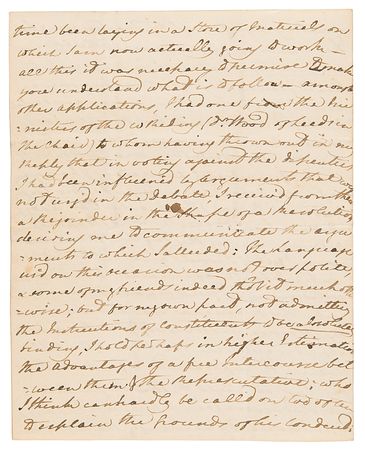 time been laying in a Store of Materials on
which I am now actually going to work –
all this it was necessary to premise to make
you understand what is to follow – among
other applications, I had one from the Mi-
-nisters of the West Riding (Dr. Wood of Leeds in
the Chair) to whom having thrown out in my
Reply that in voting against the
I had been influenced by arguments that were
not urged in the debate, I received from them
a Rejoinder in the shape of a Resolution
desiring me to communicate the argu-
-ments to which I alluded: The Language
used on this occasion was not over polite,
& some of my friends indeed thought it much other-
-wise; but for my own part, not admitting
the Instructions of Constituents to be absolutely
binding, I hold perhaps in higher Estimation
the advantages of a free intercourse bet-
-ween them & the Representative; who
I think can hardly be called on too often
to explain the Grounds of his conduct: